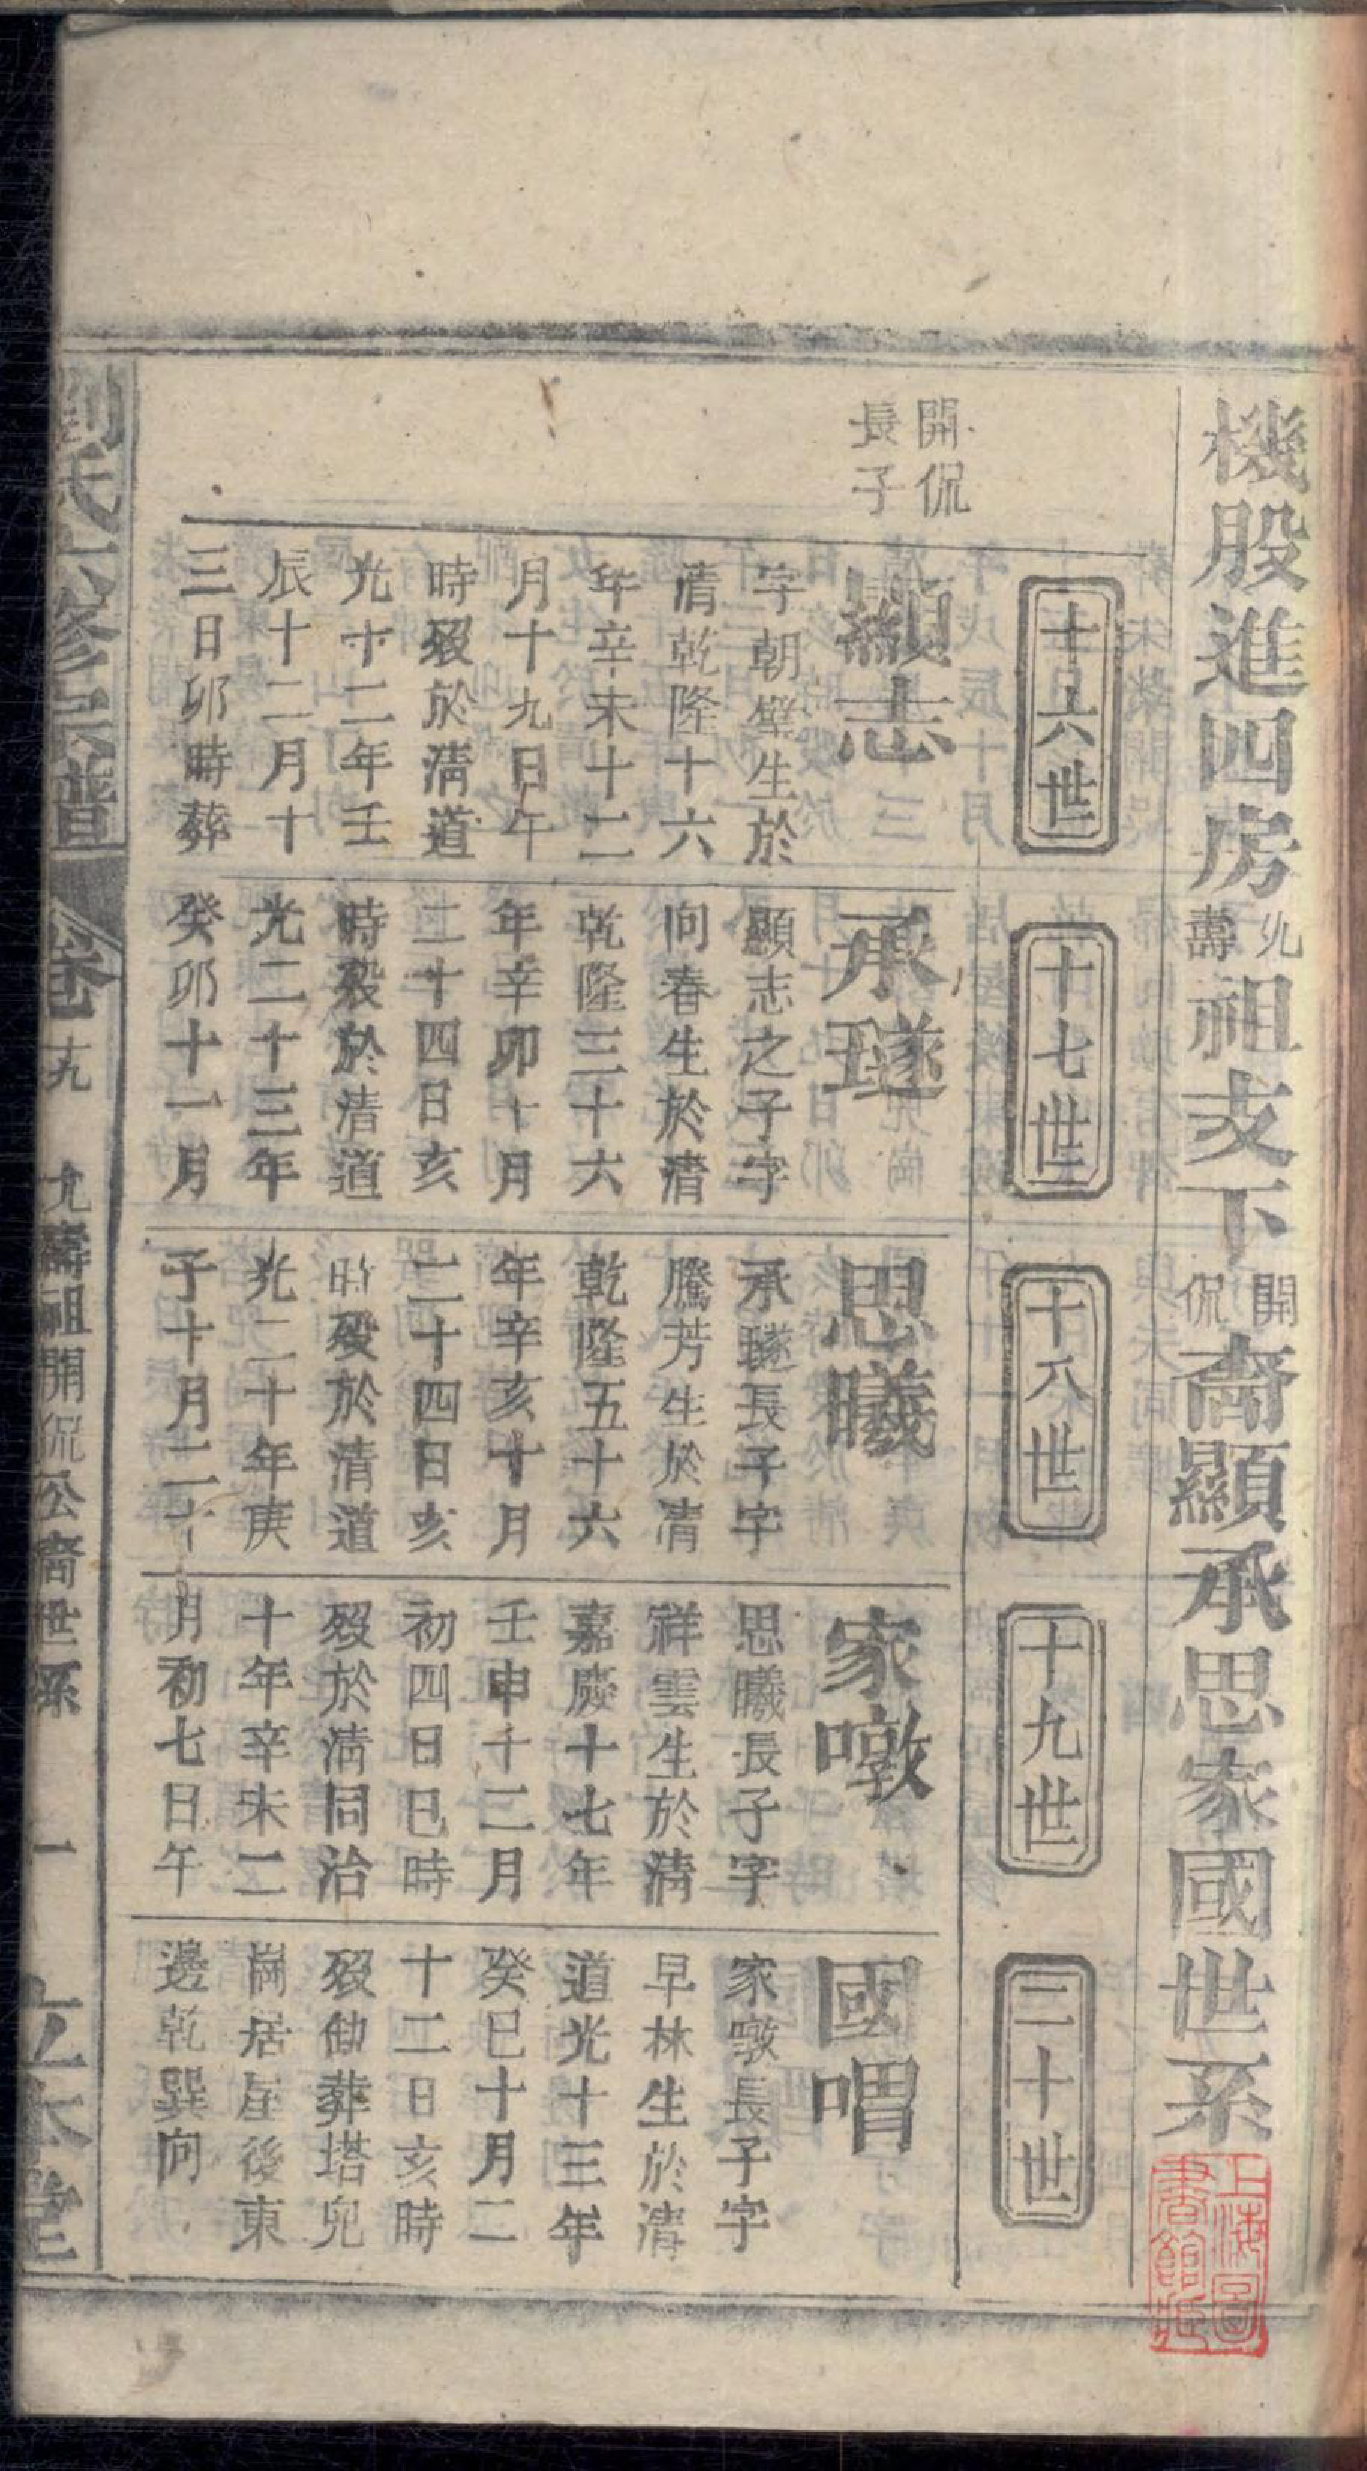 機股進四房允壽祖支下開侃裔顯承思家國世系
十六世
十七世
十八世
十九世
二十世
開侃
長子
顯志
字朝璧生於
清乾隆十六
年辛未十二
月十九日午
時歿於清道
光十二年壬
辰十二月十
三日卯時葬
承璲
顯志之子字
向春生於清
乾隆三十六
年辛卯十月
二十四日亥
時歿於清道
光二十三年
癸卯十一月
思曦
承璲長子字
騰芳生於清
乾隆五十六
年辛亥十月
二十四日亥
時歿於清道
光二十年庚
子十月二十
家暾
思曦長子字
祥雲生於清
嘉慶十七年
壬申十二月
初四日巳時
歿於清同治
十年辛未二
月初七日午
國喟
家暾長子字
早林生於清
道光十三年
癸巳十月二
十二日亥時
歿缺葬塔兒
崗居屋後東
邊乾巽向
劉氏六修宗譜
卷十九
允壽祖開侃公裔世系
一
立本堂
上海圖
書館藏